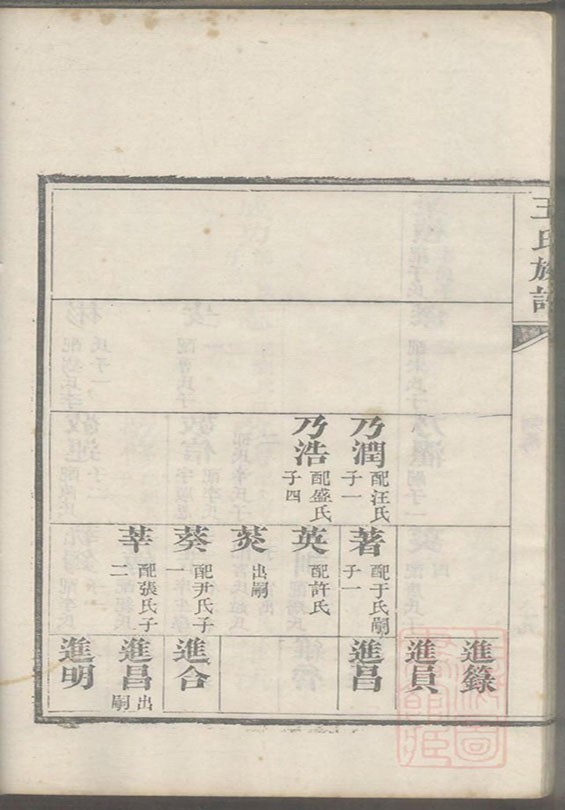 王氏族譜
乃潤 配汪氏子一
乃浩 配盛氏子四
著 配于氏嗣子一
英 配許氏
菼 出嗣
葵 配尹氏子一
莘 配張氏子二
進錄
進員
進昌
進合
進昌 出嗣
進明